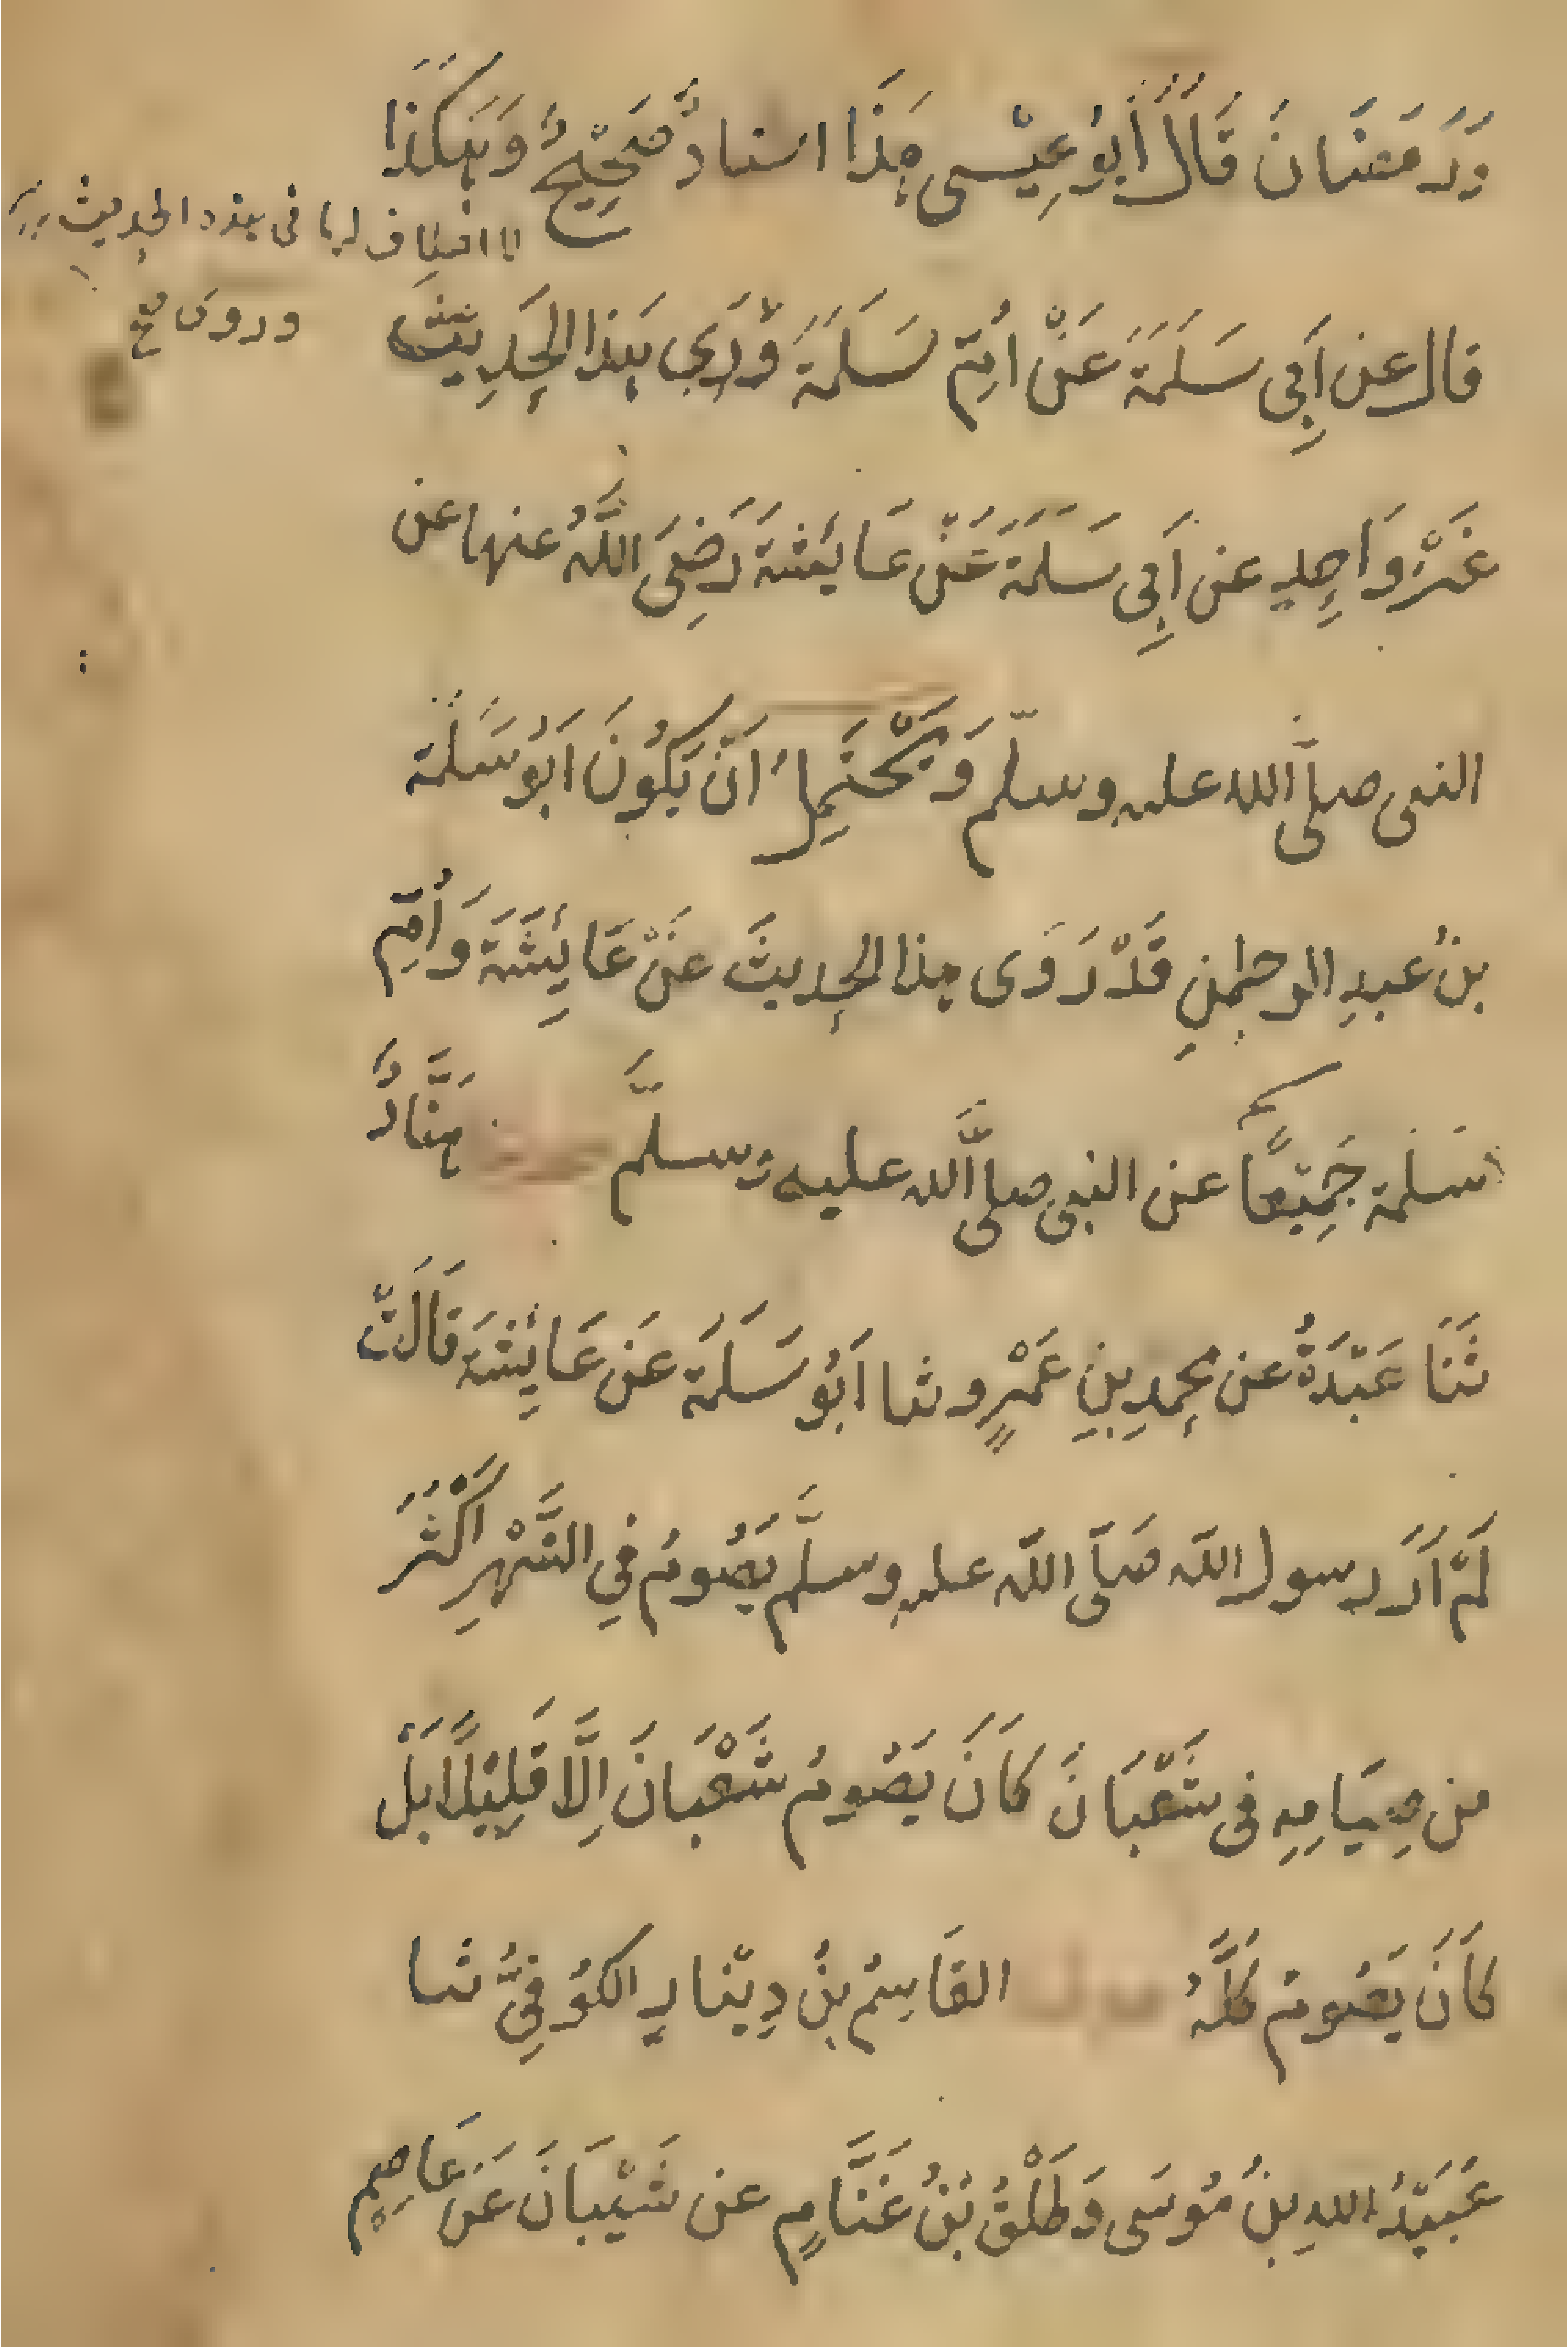 وَرَمَضَانَ قَالَ أَبُو عِيْسى هَذَا اسنادٌ صَحِيْحٌ وَهَكَذَا
قال عن اَبِى سَلَمَةَ عَنْ اُمِّ سَلَمَةَ وَرَوى هَذا الحَدِيْثَ
غَيْرُ وَاحِدٍ عن اَبِى سَلَمَةَ عَنْ عَايِشَةَ رَضِىَ اللَّهُ عنها عن
النبى صلَّى الله عليه وسلّم وَيَحْتَمِلُ اَنْ يَكُونَ اَبُو سَلَمَة
بنُ عبدِ الرحمنِ قَدْ رَوَى هذا الحديثَ عَنْ عَايِشَةَ وَاُمِّ
سَلَمة جَمِيْعًا عن النبى صلَّى الله عليه وسلَّم هَنَّادٌ
ثَنَا عَبْدَةُ عن محمدِ بنِ عَمْرٍو ثنا اَبُو سَلَمَة عَن عَايِشَة قَالَتْ
لَمْ اَرَ رسول الله صَلّى الله عليه وسلَّم يَصُومُ فِي الشَّهْرِ اَكْثَرَ
من صِيَامِهِ فى شَعْبَانَ كَانَ يَصُومُ شَعْبَانَ اِلَّا قَلِيْلًا بَلْ
كَانَ يَصُومُ كُلَّهُ القَاسِمُ بنُ دِيْنَارٍ الكُوْفِىُّ ثنا
عُبَيْدُ اللهِ بنُ مُوسَى وَطَلْقُ بْنُ غَنَّامٍ عن شَيْبَانَ عَنْ عَاصِمٍ